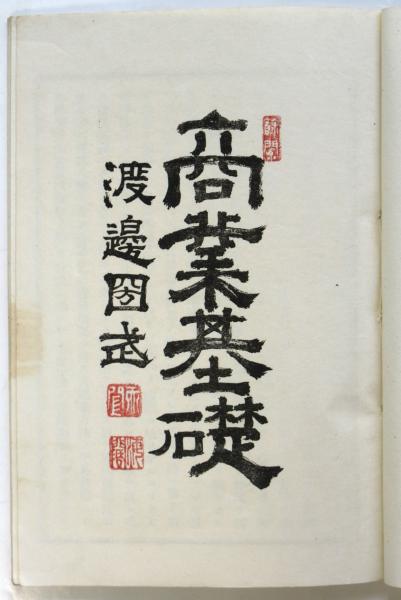 商業基礎
渡邊圀武